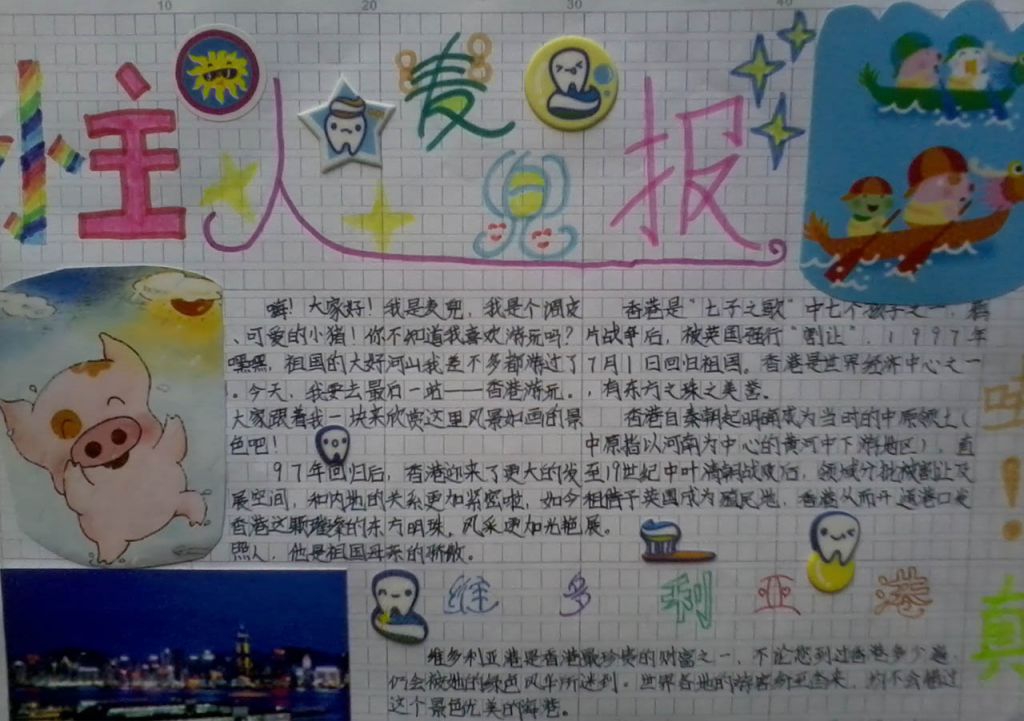 10 20 30 40
小主人麦兜报
嗨！大家好！我是麦兜，我是个调皮
、可爱的小猪！你不知道我喜欢游玩吗？
嘿嘿，祖国的大好河山我差不多都游过了
。今天，我要去最后一站——香港游玩。
大家跟着我一块来欣赏这里风景如画的景
色吧！
97年回归后，香港迎来了更大的发
展空间，和内地的关系更加紧密啦，如今
香港这颗璀璨的东方明珠，风采更加光艳
照人，他是祖国母亲的骄傲。
香港是“七子之歌”中七个孩子之一，鸦
片战争后，被英国强行“割让”，1997年
7月1日回归祖国。香港是世界经济中心之一
，有东方之珠之美誉。
香港自秦朝起明确成为当时的中原领土（
中原指以河南为中心的黄河中下游地区），直
至19世纪中叶清朝战败后，领域分批被割让及
租借于英国成为殖民地，香港从而开通港口发
展。
哇！
真
维多利亚港
维多利亚港是香港最珍贵的财富之一，不论您到过香港多少遍
们会被她的绿色风华所迷到。世界各地的游客们来，均不会错过
这个景色优美的海港。